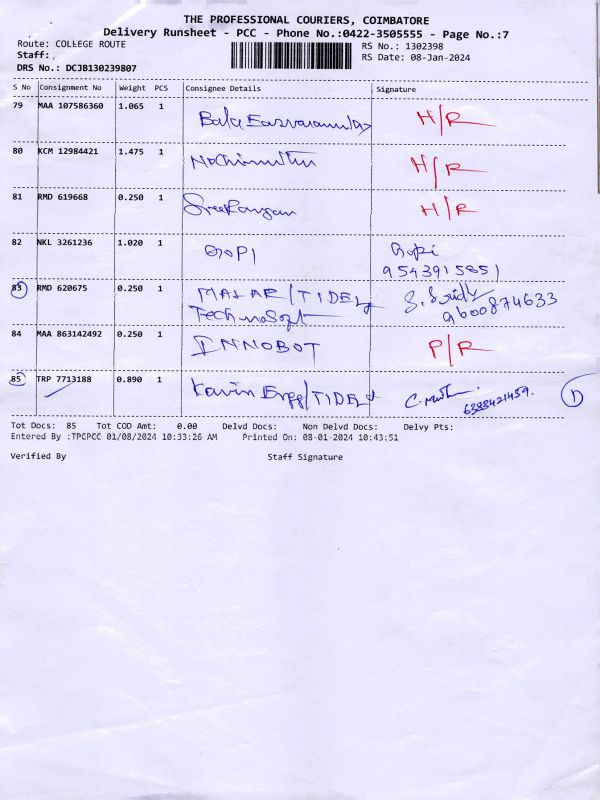 THE PROFESSIONAL COURIERS, COIMBATORE
Delivery Runsheet - PCC - Phone No.:0422-3505555 - Page No.:7
Route: COLLEGE ROUTE RS No.: 1302398
Staff:, RS Date: 08-Jan-2024
DRS No.: DCJB130239807
S No Consignment No Weight PCS Consignee Details Signature
79 MAA 107586360 1.065 1 H/R
80 KCM 12984421 1.475 1 H/R
81 RMD 619668 0.250 1 H/R
82 NKL 3261236 1.020 1 GOPI Gopi
9543915851
83 RMD 620675 0.250 1 MALAR/TIDEL
TechnoSoft 9600874633
84 MAA 863142492 0.250 1 INNOBOT P/R
85 TRP 7713188 0.890 1 Kavin Engg/TIDEL
6383421459.
D
Tot Docs: 85 Tot COD Amt: 0.00 Delvd Docs: Non Delvd Docs: Delvy Pts:
Entered By :TPCPCC 01/08/2024 10:33:26 AM Printed On: 08-01-2024 10:43:51
Verified By Staff Signature